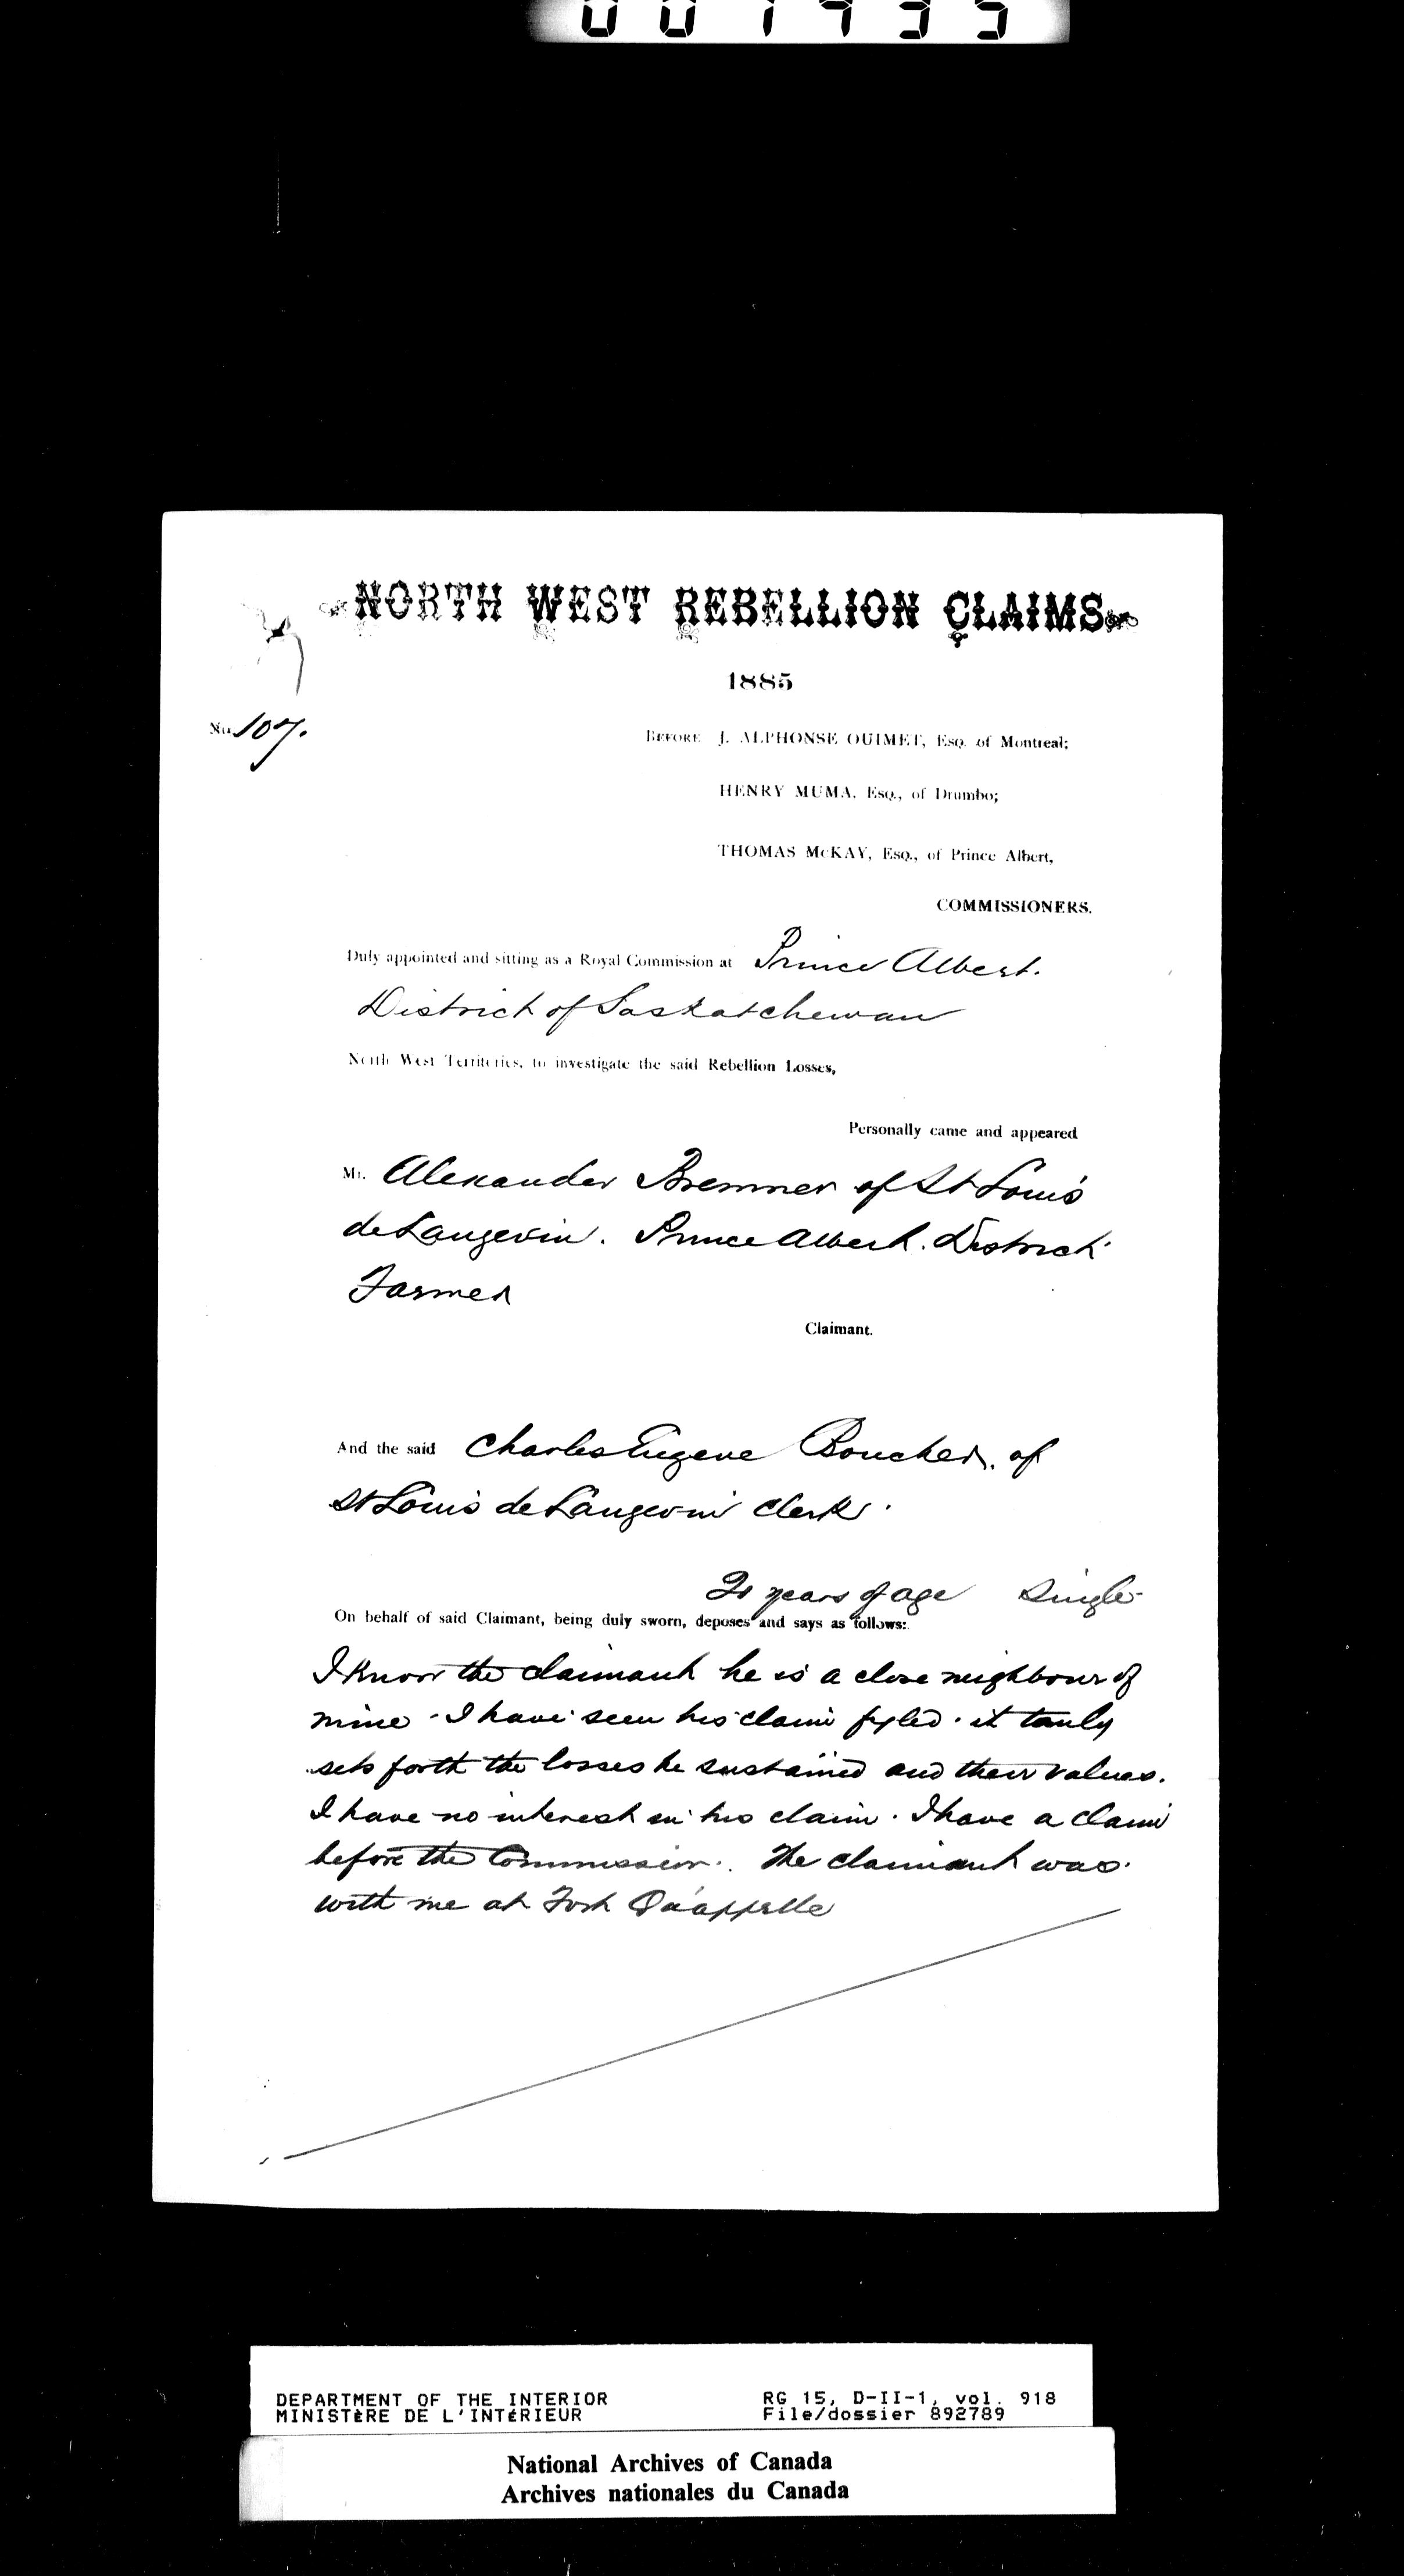 001435
NORTH WEST REBELLION CLAIMS
1885
No. 107.
BEFORE J. ALPHONSE OUIMET, Esq. of Montreal;
HENRY MUMA, Esq., of Drumbo;
THOMAS McKAY, Esq., of Prince Albert,
COMMISSIONERS.
Duly appointed and sitting as a Royal Commission at Prince Albert.
District of Saskatchewan
North West Territories, to investigate the said Rebellion Losses,
Personally came and appeared
Mr. Alexander Bremner of St Louis
de Langevin. Prince Albert. District
Farmer
Claimant.
And the said Charles Eugene Boucher, of
St Louis de Langevin Clerk.
21 years of age Single
On behalf of said Claimant, being duly sworn, deposes and says as follows:
I know the claimant he is a close neighbour of
mine - I have seen his claim fyled. it truly
sets forth the losses he sustained and their values.
I have no interest in his claim. I have a claim
before the Commission. The claimant was
with me at Fort Qu'appelle
DEPARTMENT OF THE INTERIOR RG 15, D-II-1, vol. 918
MINISTÈRE DE L'INTÉRIEUR File/dossier 892789
National Archives of Canada
Archives nationales du Canada